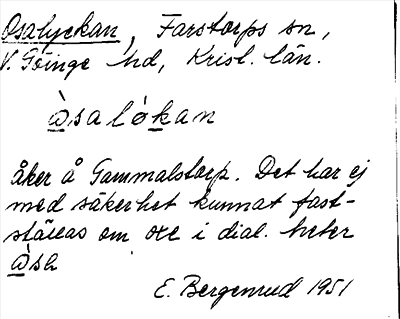 Osalyckan, Farstorps sn,
V. Göinge hd, Krisl. län.
àsalókan
åker å Gammalstorp. Det har ej
med säkerhet kunnat fast-
ställas om oxe i dial. heter
àsh
E. Bergenrud 1951